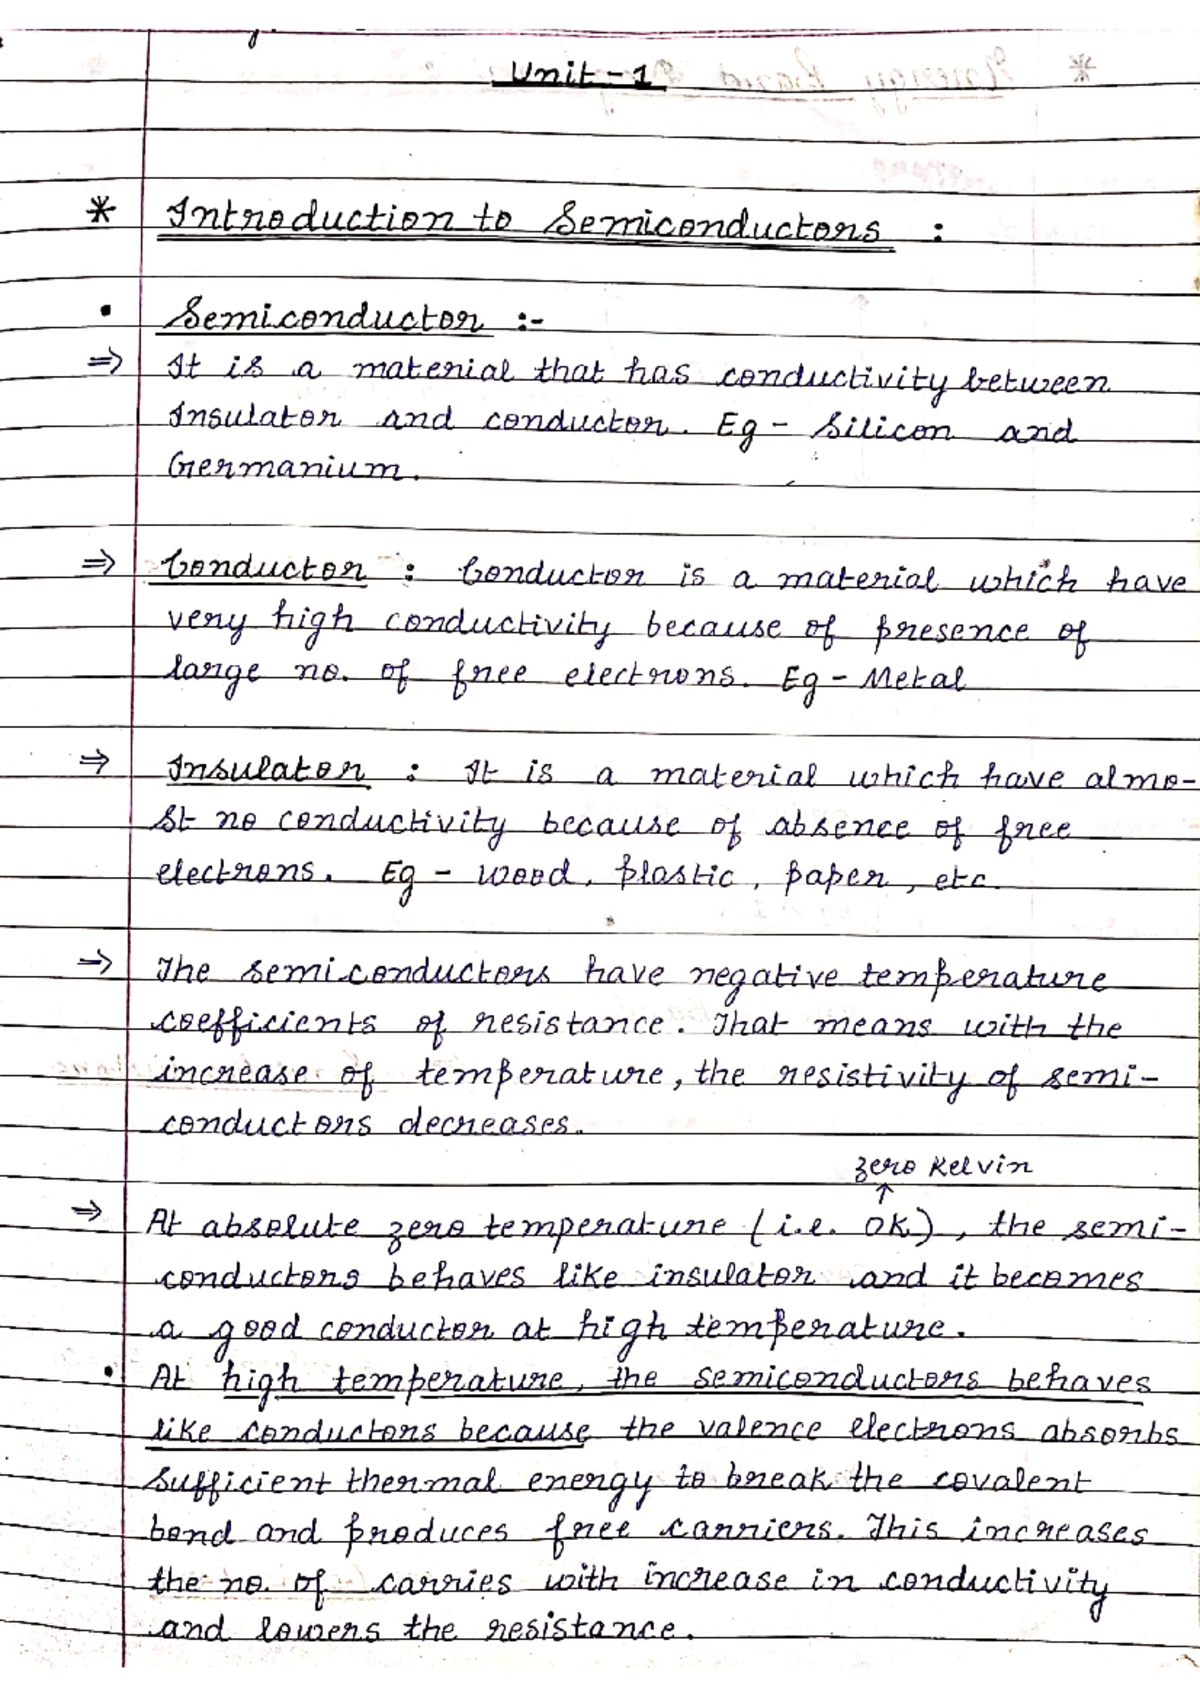 Unit - 1
* Introduction to Semiconductors :
• Semiconductor :-
⇒ It is a material that has conductivity between
Insulator and conductor. Eg - Silicon and
Germanium.
⇒ Conductor : Conductor is a material which have
very high conductivity because of presence of
large no. of free electrons. Eg - Metal
⇒ Insulator : It is a material which have almo-
st no conductivity because of absence of free
electrons. Eg - wood, plastic, paper, etc.
⇒ The semiconductors have negative temperature
coefficients of resistance. That means with the
increase of temperature, the resistivity of semi-
conductors decreases.
zero Kelvin
↑
⇒ At absolute zero temperature (i.e. 0K), the semi-
conductors behaves like insulator and it becomes
a good conductor at high temperature.
• At high temperature, the semiconductors behaves
like conductors because the valence electrons absorbs
sufficient thermal energy to break the covalent
bond and produces free carriers. This increases
the no. of carries with increase in conductivity
and lowers the resistance.